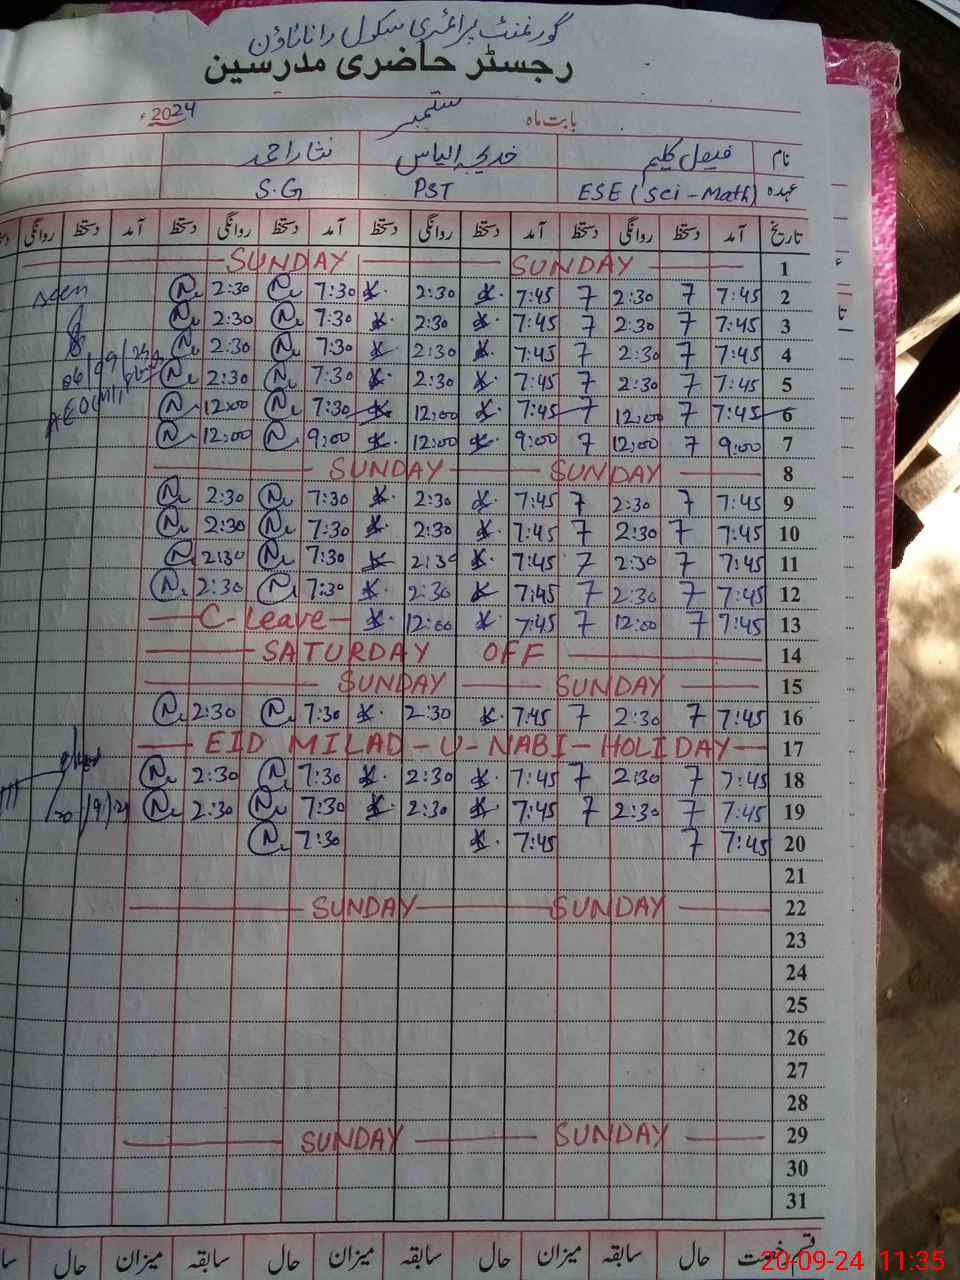 گورنمنٹ پرائمری سکول رانا ٹاؤن
رجسٹر حاضری مدرسین
بابت ماہ ستمبر 2024ء
نام فیصل کلیم خدیجہ الیاس نثار احمد
عہدہ ESE (Sci-Math) PST S.G
تاریخ آمد دستخط روانگی دستخط آمد دستخط روانگی دستخط آمد دستخط روانگی دستخط آمد دستخط روانگی
1 SUNDAY SUNDAY
2 7:45 7 2:30 7 7:45 2:30 7:30 2:30 seen
3 7:45 7 2:30 7 7:45 2:30 7:30 2:30
4 7:45 7 2:30 7 7:45 2:30 7:30 2:30
5 7:45 7 2:30 7 7:45 2:30 7:30 2:30
6 7:45 7 12:00 7 7:45 12:00 7:30 12:00
7 9:00 7 12:00 7 9:00 12:00 9:00 12:00
8 SUNDAY SUNDAY
9 7:45 7 2:30 7 7:45 2:30 7:30 2:30
10 7:45 7 2:30 7 7:45 2:30 7:30 2:30
11 7:45 7 2:30 7 7:45 2:30 7:30 2:30
12 7:45 7 2:30 7 7:45 2:30 7:30 2:30
13 7:45 7 12:00 7 7:45 12:00 C-Leave
14 SATURDAY OFF
15 SUNDAY SUNDAY
16 7:45 7 2:30 7 7:45 2:30 7:30 2:30
17 EID MILAD-U-NABI-HOLIDAY
18 7:45 7 2:30 7 7:45 2:30 7:30 2:30
19 7:45 7 2:30 7 7:45 2:30 7:30 2:30
20 7:45 7 7:45 7:30
21
22 SUNDAY SUNDAY
23
24
25
26
27
28
29 SUNDAY SUNDAY
30
31
قسم رخصت حال سابقہ میزان حال سابقہ میزان حال سابقہ میزان حال
20-09-24 11:35